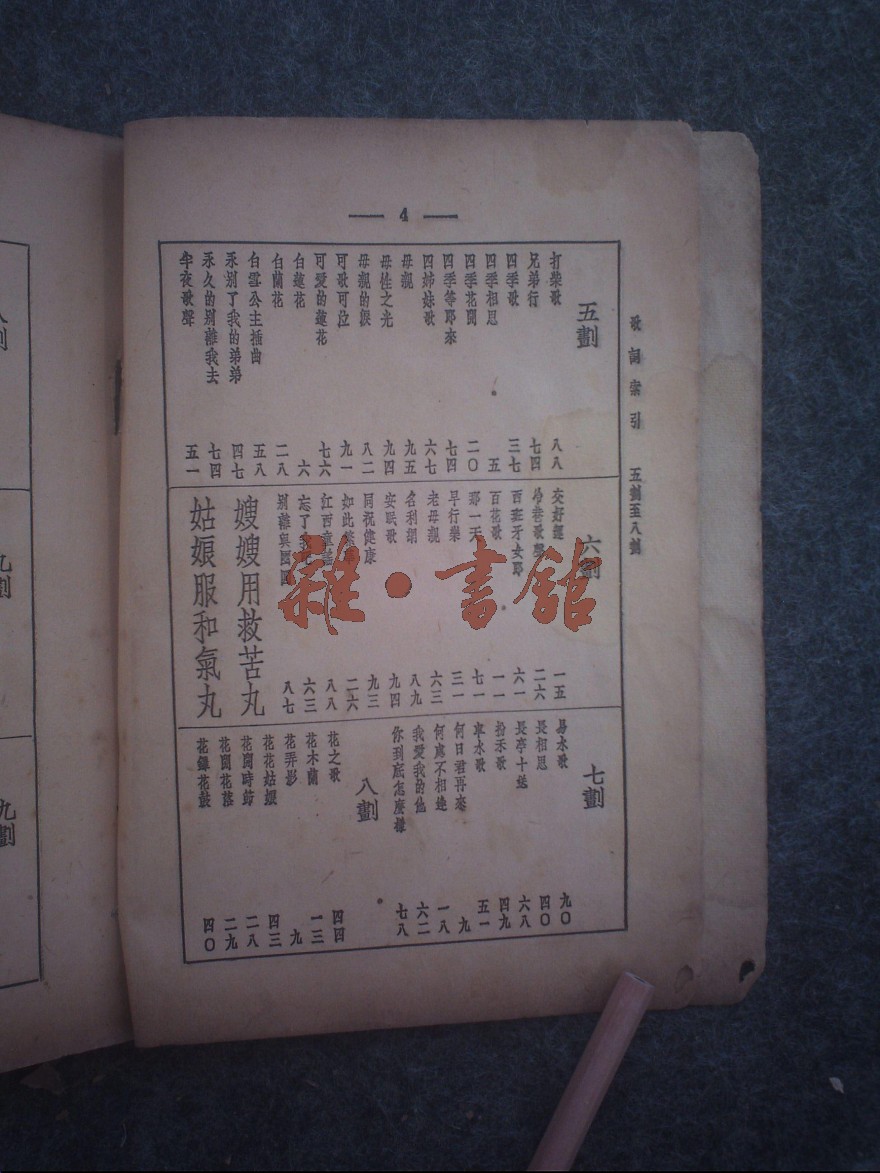 4
歌詞索引 五劃至八劃
五劃
打柴歌 八八
兄弟行 七四
四季歌 三七
四季相思 五
四季花開 二〇
四季等郎來 七四
四姊妹歌 六七
母親 九五
母性之光 九四
母親的淚 八二
可歌可泣 九一
可愛的蓮花 七六
白蓮花 六
白蘭花 二八
白雪公主插曲 五八
永別了我的弟弟 四七
永久的別離我去 七四
半夜歌聲 五一
六劃
交好運 一五
歌聲 二六
西班牙女郎 六一
百花歌 一一
那一天 七一
早行樂 三一
老母親 六三
名利網 八九
安眠歌 九四
同祝健康 九三
如此繁華 二六
江西童謠 八八
忘了我 六三
別離 八七
嫂嫂用救苦丸
姑娘服和氣丸
七劃
易水歌 九〇
長相思 四〇
長亭十送 六八
扮禾歌 四九
車水歌 五一
何日君再來 九
何處不相逢 一八
我愛我的他 六二
你到底怎麼樣 七八
八劃
花之歌 四四
花木蘭 一三
花弄影 九
花花姑娘 四三
花開時節 二八
花開花落 二九
花鎆花鼓 四〇
九劃
九劃
雜·書館